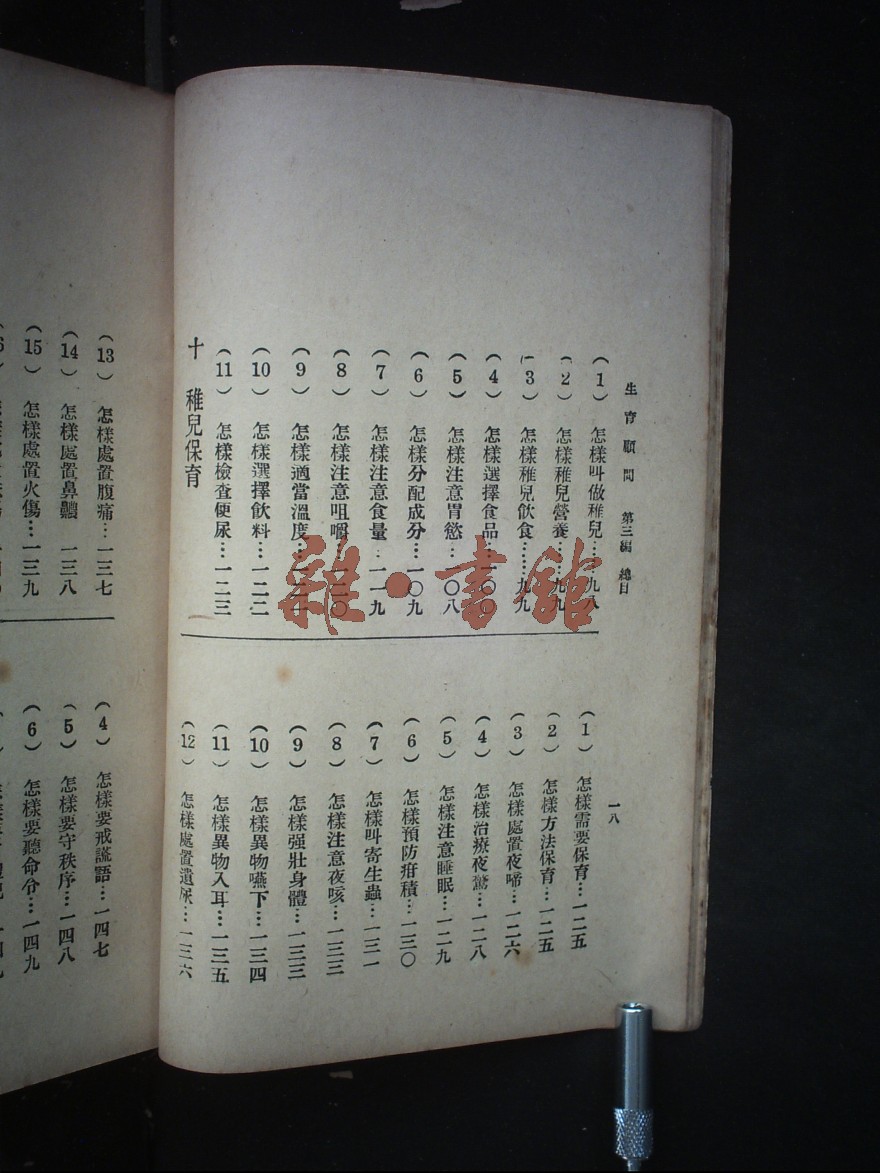 生育顧問 第三編 總目
一八
(1) 怎樣叫做稚兒……九八
(2) 怎樣稚兒營養…九九
(3) 怎樣稚兒飲食……九九
(4) 怎樣選擇食品…一〇〇
(5) 怎樣注意胃慾…一〇八
(6) 怎樣分配成分…一〇九
(7) 怎樣注意食量…一一九
(8) 怎樣注意咀嚼…一二〇
(9) 怎樣適當溫度…
(10) 怎樣選擇飲料…一二二
(11) 怎樣檢查便尿…一二三
十 稚兒保育
(1) 怎樣需要保育…一二五
(2) 怎樣方法保育…一二五
(3) 怎樣處置夜啼…一二六
(4) 怎樣治療夜驚…一二八
(5) 怎樣注意睡眠…一二九
(6) 怎樣預防疳積…一三〇
(7) 怎樣叫寄生蟲…一三一
(8) 怎樣注意夜咳…一三三
(9) 怎樣强壯身體…一三三
(10) 怎樣異物嚥下…一三四
(11) 怎樣異物入耳…一三五
(12) 怎樣處置遺尿…一三六
(13) 怎樣處置腹痛…一三七
(14) 怎樣處置鼻衂 一三八
(15) 怎樣處置火傷…一三九
(4) 怎樣要戒謊語…一四七
(5) 怎樣要守秩序…一四八
(6) 怎樣要聽命令…一四九
雜·書館